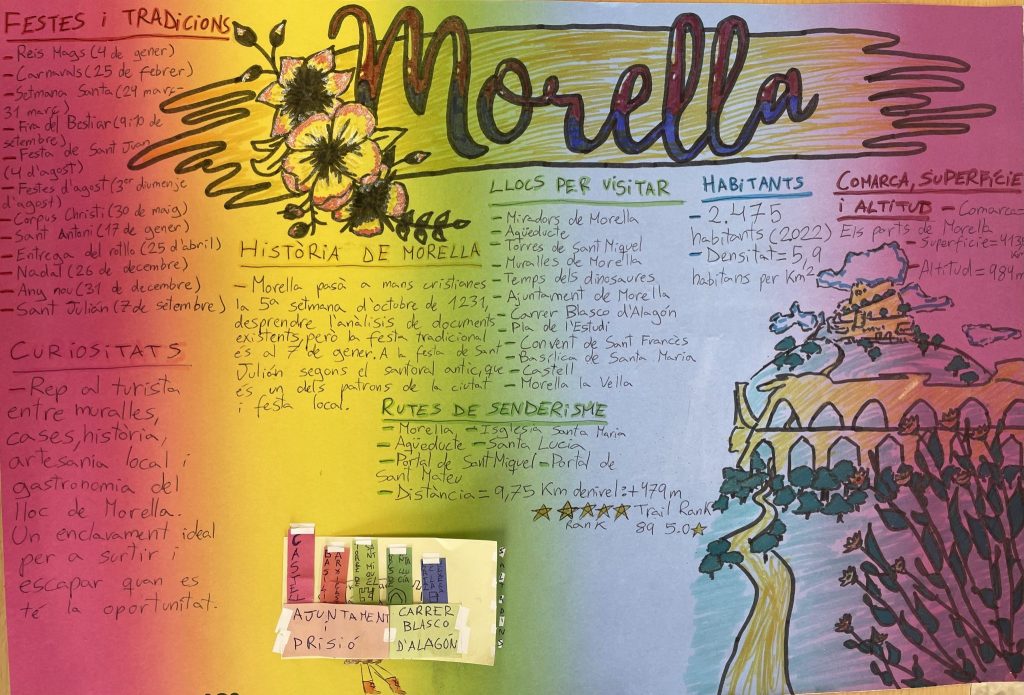 Morella
FESTES i TRADICIONS
- Reis Mags (4 de gener)
- Carnavals (25 de febrer)
- Setmana Santa (24 març-
31 març)
- Fira del Bestiar (9 i 10 de
setembre)
- Festa de Sant Juan
(4 d'agost)
- Festes d'agost (3er diumenje
d'agost)
- Corpus Christi (30 de maig)
- Sant Antoni (17 de gener)
- Entrega del rotllo (25 d'abril)
- Nadal (26 de decembre)
- Any nou (31 de decembre)
- Sant Julián (7 de setembre)
CURIOSITATS
- Rep al turista
entre muralles,
cases, història,
artesania local i
gastronomia del
lloc de Morella.
Un enclavament ideal
per a surtir i
escapar quan es
té la oportunitat.
HISTÒRIA DE MORELLA
- Morella pasà a mans cristianes
la 5ª setmana d'octubre de 1231,
desprendre l'anàlisis de documents
existents, però la festa tradicional
és al 7 de gener. A la festa de Sant
Julián segons el santoral antic, que
és un dels patrons de la ciutat
i festa local.
LLOCS PER VISITAR
- Miradors de Morella
- Aqüeducte
- Torres de Sant Miquel
- Muralles de Morella
- Temps dels dinosaures
- Ajuntament de Morella
- Carrer Blasco d'Alagón
- Pla de l'Estudi
- Convent de Sant Francès
- Basílica de Santa Maria
- Castell
- Morella la Vella
RUTES DE SENDERISME
- Morella - Isglesia Santa Maria
- Aqüeducte - Santa Lucia
- Portal de Sant Miquel - Portal de
Sant Mateu
- Distància = 9,75 Km denivel: +479 m
Trail Rank
Rank 89 5.0
HABITANTS
- 2.475
habitants (2022)
- Densitat = 5,9
habitans per Km²
COMARCA, SUPERFÍCIE
i ALTITUD - Comarca=
Els ports de Morella
- Superfície = 413
- Altitud = 984 m
CASTELL
AJUNTAMENT
i
PRISIÓ
CARRER
BLASCO
D'ALAGÓN